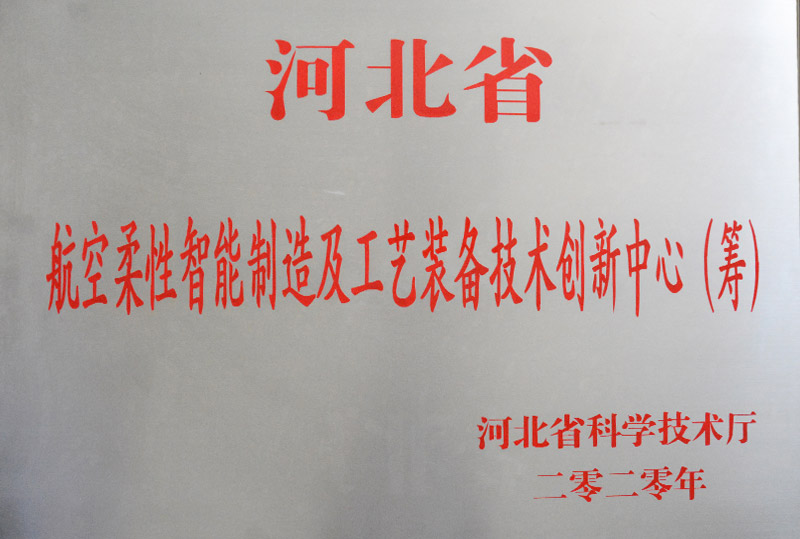 河北省
航空柔性智能制造及工艺装备技术创新中心（筹）
河北省科学技术厅
二零二零年